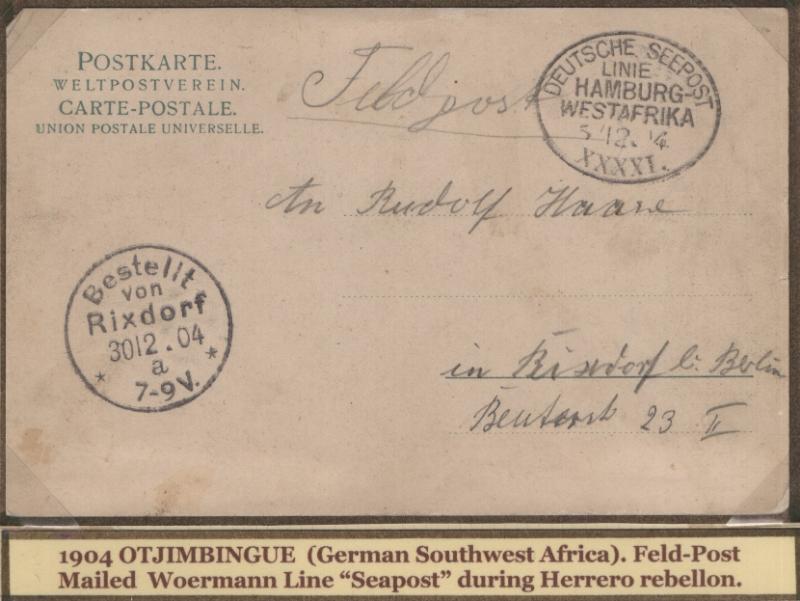 POSTKARTE.
WELTPOSTVEREIN.
CARTE-POSTALE.
UNION POSTALE UNIVERSELLE.
Feldpost
DEUTSCHE SEEPOST
LINIE
HAMBURG-
WESTAFRIKA
5 12. 4
XXXXI.
An Rudolf Haase
Bestellt
von
Rixdorf
3012.04
a
7-9V.
in Rixdorf b. Berlin
23 II
1904 OTJIMBINGUE (German Southwest Africa). Feld-Post
Mailed Woermann Line “Seapost” during Herrero rebellon.